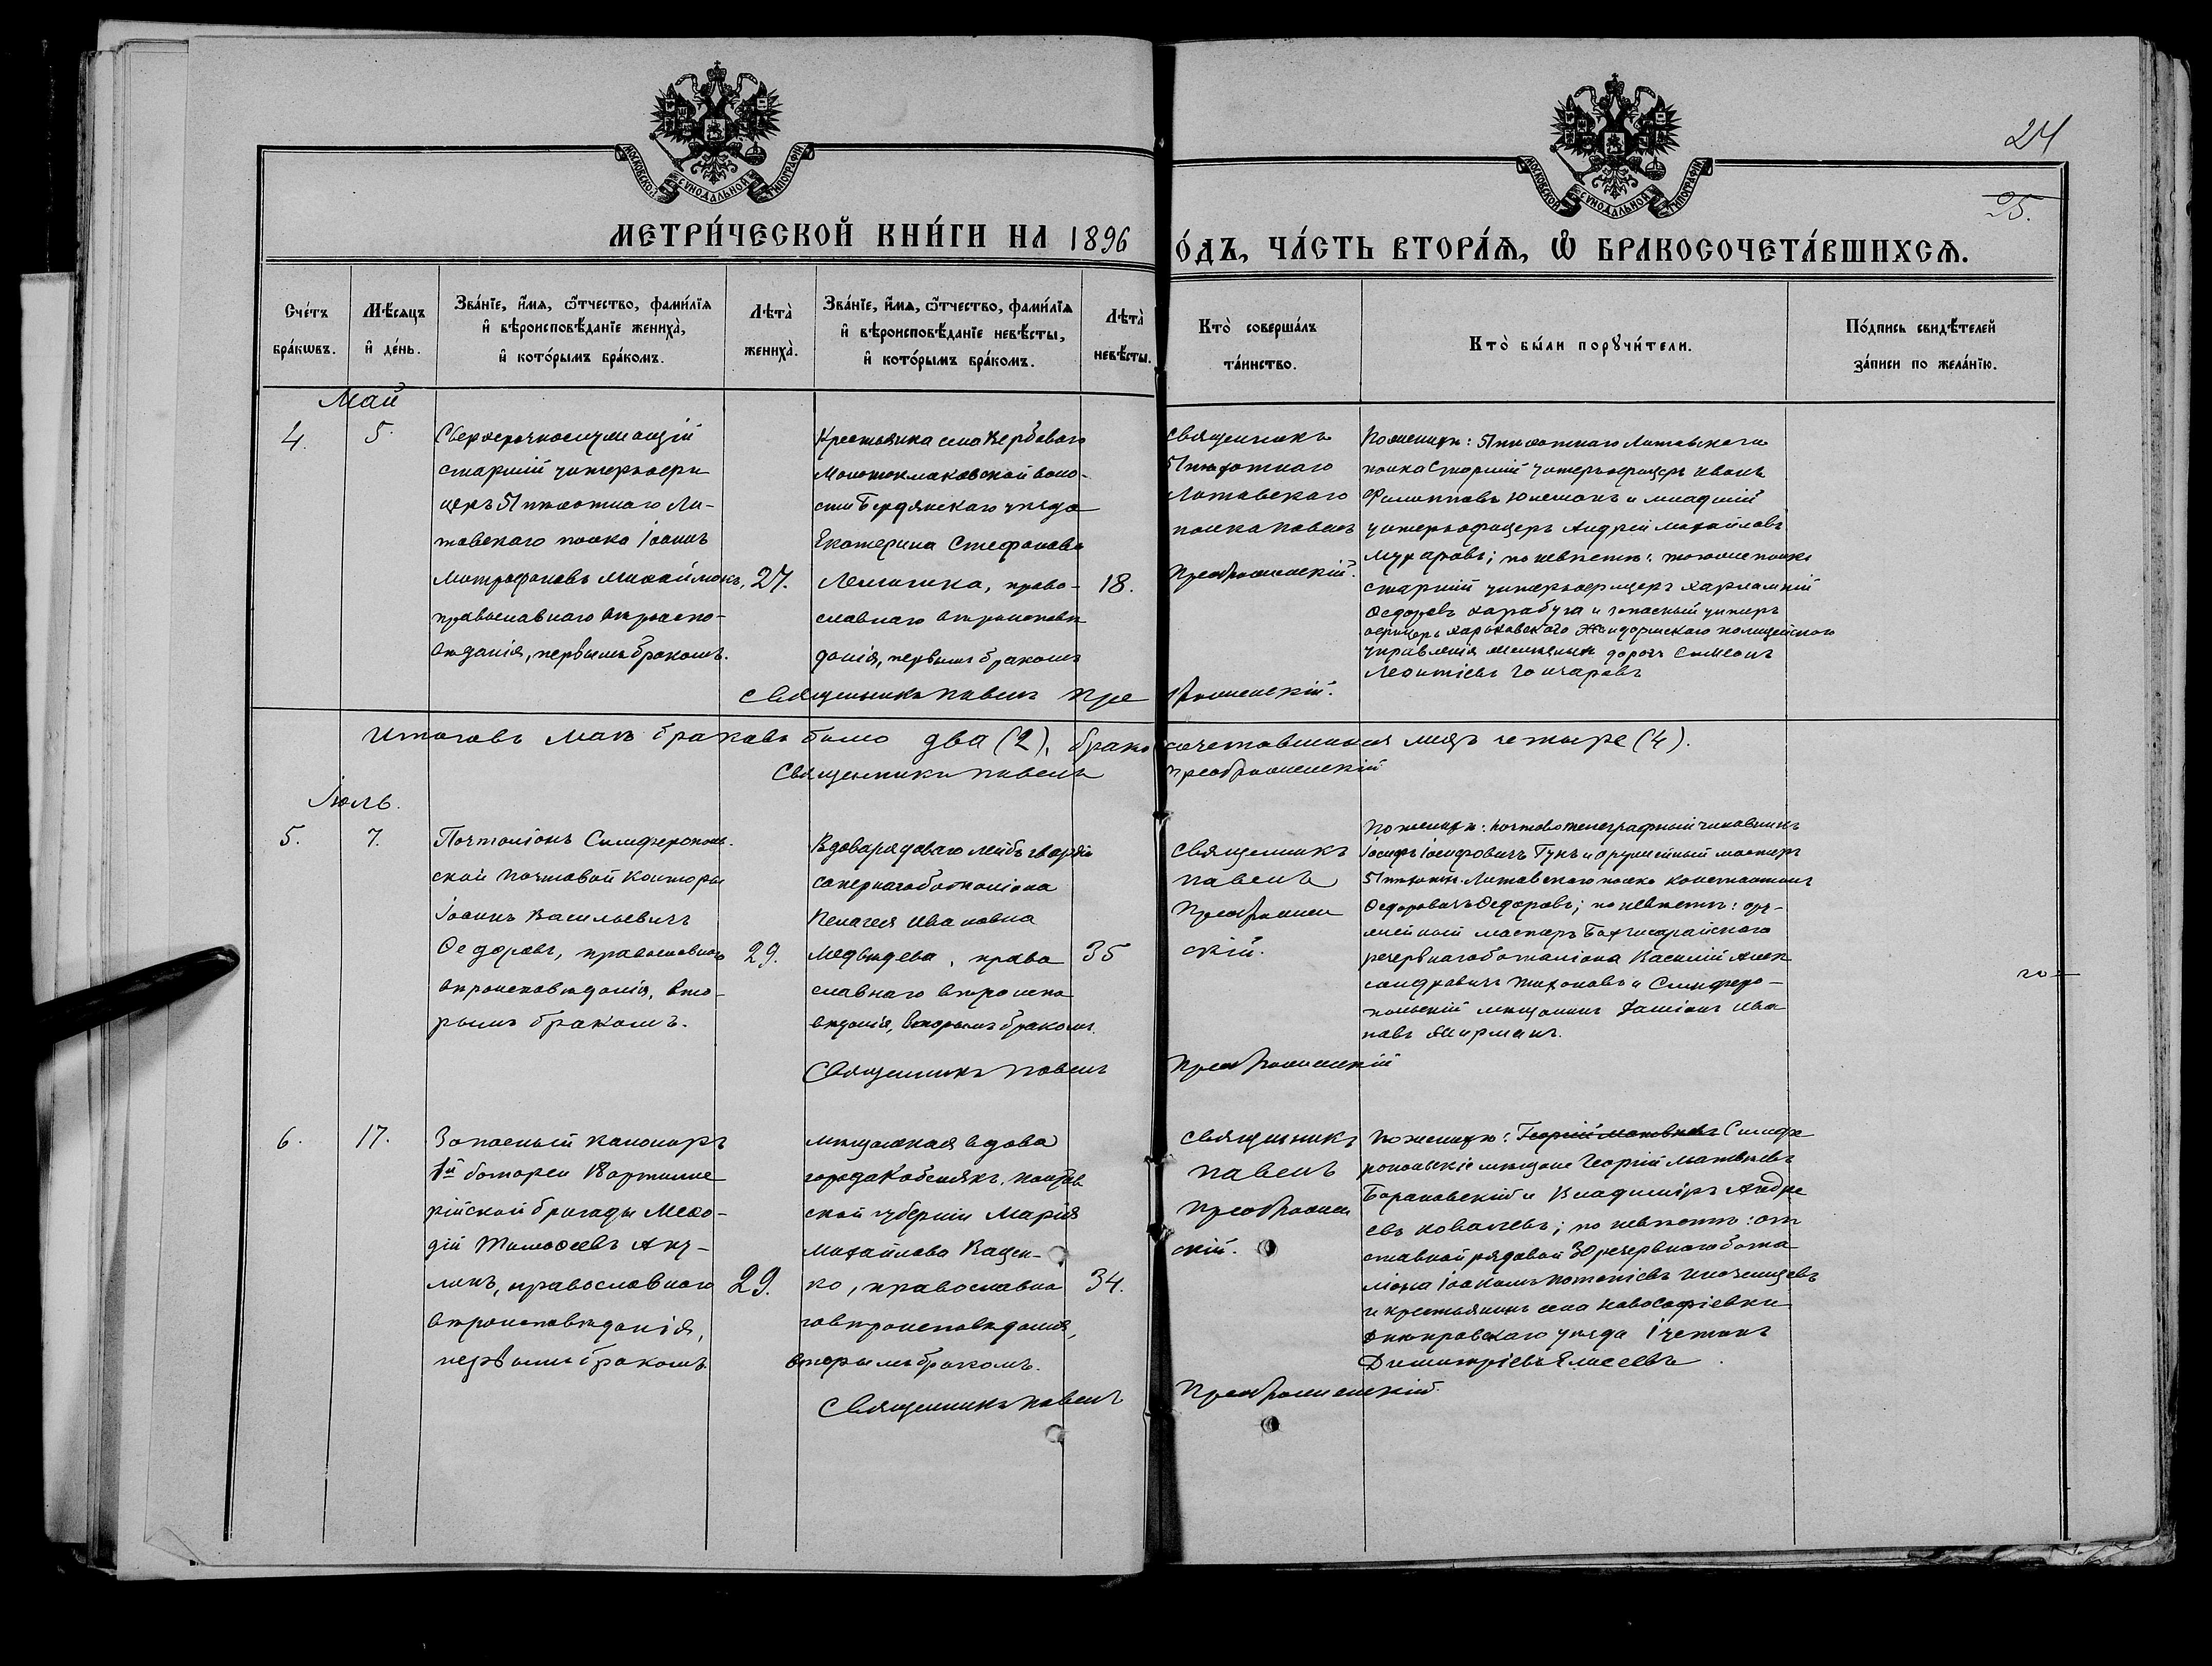 МОСКОВСКОЙ СУНОДАЛЬНОЙ ТИПОГРАФІИ
МОСКОВСКОЙ СУНОДАЛЬНОЙ ТИПОГРАФІИ
24
25.
МЕТРИ́ЧЕСКОЙ КНИ́ГИ НА 1896
О́ДЪ, ЧА́СТЬ ВТОРА́Ѧ, Ѡ БРАКОСОЧЕТА́ВШИХСѦ.
Сче́тъ бра́кѡвъ.
Мѣ́сяцъ и де́нь.
Зва́нїе, и́мѧ, ѻ҆́тчество, фами́лїѧ
и҆ вѣроисповѣ́данїе жениха̀,
и҆ кото́рымъ бра́комъ.
Лѣта̀ жениха̀.
Зва́нїе, и́мѧ, ѻ҆́тчество, фами́лїѧ
и҆ вѣроисповѣ́данїе невѣ́сты,
и҆ кото́рымъ бра́комъ.
Лѣта̀ невѣ́сты.
Кто̀ соверша́лъ та́инство.
Кто̀ бы́ли порꙋчи́тели.
По́дпись свидѣ́телей за́писи по жела́нїю.
Май
4.
5.
Сверхсрочнослужащій
старшій унтеръ-офи
церъ 51 пѣхотнаго Ли-
товскаго полка Іоаннъ
Митрофановъ
православнаго вѣроиспо-
вѣданія, первымъ бракомъ.
27.
Крестьянка села Вербоваго
Молотокмаковской воло-
сти Бердянскаго уѣзда
Екатерина Стефанова
право-
славнаго вѣроисповѣ
данія, первымъ бракомъ
18.
Священникъ
51 пѣхотнаго
Литовскаго
полка Павелъ
Преображенскій.
По женихѣ: 51 пѣхотнаго Литовскаго
полка старшій унтеръ-офицеръ Иванъ
Филипповъ и младшій
унтеръ-офицеръ Андрей Михайловъ
по невѣстѣ: того же полка
старшій унтеръ-офицеръ Харлампій
Ѳедоровъ Карабуга и запасный унтеръ
офицеръ Харьковскаго Жандармскаго полицейскаго
управленія желѣзныхъ дорогъ Симеонъ
Леонтіевъ Гончаровъ
Священникъ Павелъ Преображенскій.
Итого въ маѣ браковъ было два (2), бракосочетавшихся лицъ четыре (4).
Священникъ Павелъ Преображенскій
Іюль.
5.
7.
Почталіонъ Симферополь-
ской почтовой конторы
Іоаннъ Васильевичъ
Ѳедоровъ, православнаго
вѣроисповѣданія, вто-
рымъ бракомъ.
29.
Вдова рядоваго лейбъ гвардіи
сапернаго баталіона
Пелагея Ивановна
Медвѣдева, право
славнаго вѣроиспо
вѣданія, вторымъ бракомъ.
35
Священникъ
Павелъ
Преображен
скій.
По женихѣ: почтово-телеграфный чиновникъ
Іосифъ Іосифовичъ и оружейный мастеръ
51 пѣхотн. Литовскаго полка Константинъ
Ѳедоровичъ Ѳедоровъ; по невѣстѣ: ору-
жейный мастеръ Бахчисарайскаго
резервнаго баталіона Василій Алек
сандровичъ Тихоновъ и Симферо-
польскій мѣщанинъ Даміанъ Ива
новъ
Священникъ Павелъ Преображенскій
6.
17.
Запасный канониръ
1й батареи 18 артилле
рійской бригады Меѳо-
дій Тимоѳеевъ Аку-
линъ, православнаго
вѣроисповѣданія,
первымъ бракомъ
29.
Мѣщанская вдова
города Кобелякъ, Полтав
ской губерніи Марія
Михайлова Вацен-
ко, православна
го вѣроисповѣданія,
вторымъ бракомъ.
34.
Священникъ
Павелъ
Преображен
скій.
По женихѣ: Георгій Матвѣевъ Симфе
ропольскіе мѣщане Георгій Матвѣевъ
Барановскій и Владиміръ Андре
евъ Ковалевъ; по невѣстѣ: от
ставной рядовой 30 резервнаго бата
ліона Іоакимъ Потапіевъ Иноземцевъ
и крестьянинъ села Новософіевки
Днѣпровскаго уѣзда
Димитріевъ Елисеевъ.
Священникъ Павелъ Преображенскій.